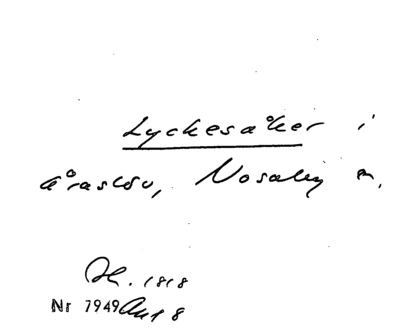 Lyckesåker i
Åraslöv, Nosaby sn.
Ak. 1818
Nr 7949 Akt 8